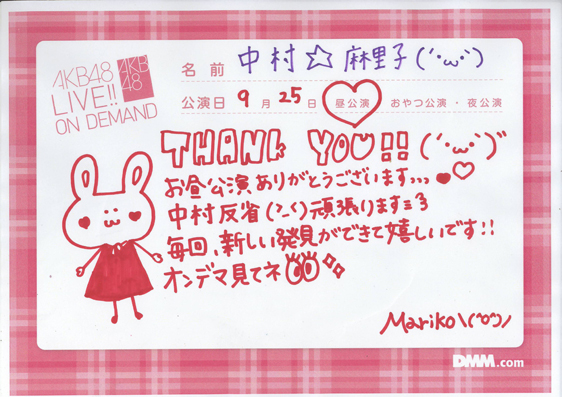 AKB48
LIVE!!
ON DEMAND
AKB
48
名前 中村☆麻里子(´･ω･`)
公演日 9月25日 昼公演 おやつ公演・夜公演
THANK YOU!!(´･ω･`)
お昼公演ありがとうございます、、、
中村反省(>_<)頑張りますミ3
毎回、新しい発見ができて嬉しいです!!
オンデマ見てネ
Mariko\(^o^)/
DMM.com